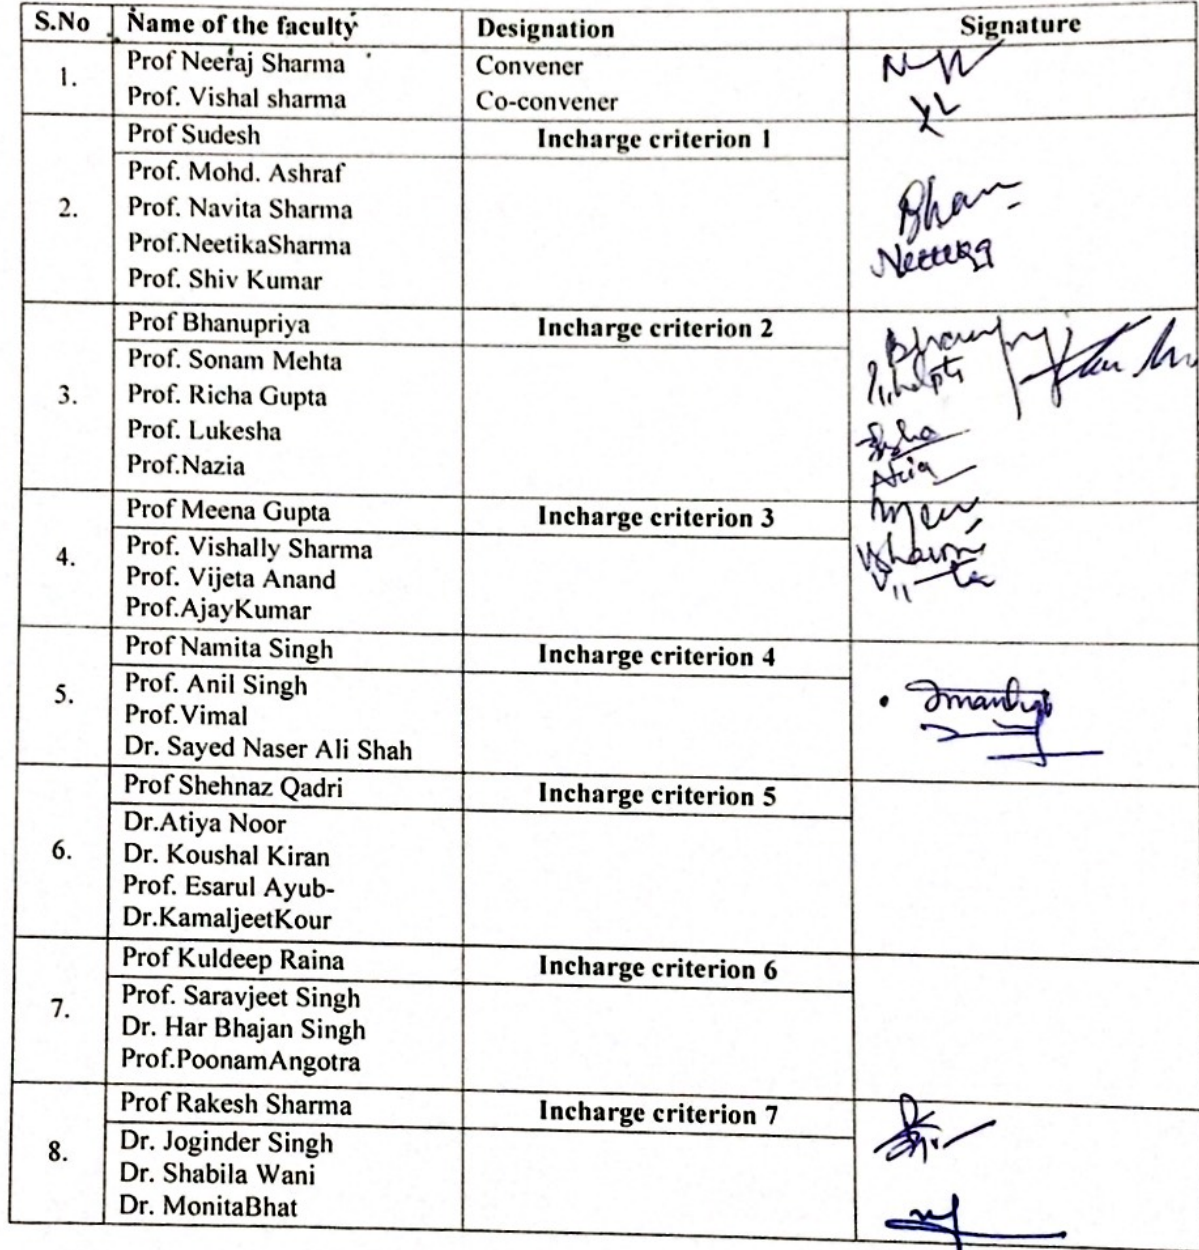 S.No Name of the faculty Designation Signature
1. Prof Neeraj Sharma Convener
Prof. Vishal sharma Co-convener
Prof Sudesh Incharge criterion 1
Prof. Mohd. Ashraf
2. Prof. Navita Sharma
Prof.NeetikaSharma
Prof. Shiv Kumar
Prof Bhanupriya Incharge criterion 2
Prof. Sonam Mehta
3. Prof. Richa Gupta
Prof. Lukesha
Prof.Nazia
Prof Meena Gupta Incharge criterion 3
Prof. Vishally Sharma
4. Prof. Vijeta Anand
Prof.AjayKumar
Prof Namita Singh Incharge criterion 4
5. Prof. Anil Singh
Prof.Vimal
Dr. Sayed Naser Ali Shah
Prof Shehnaz Qadri Incharge criterion 5
Dr.Atiya Noor
6. Dr. Koushal Kiran
Prof. Esarul Ayub-
Dr.KamaljeetKour
Prof Kuldeep Raina Incharge criterion 6
7. Prof. Saravjeet Singh
Dr. Har Bhajan Singh
Prof.PoonamAngotra
Prof Rakesh Sharma Incharge criterion 7
8. Dr. Joginder Singh
Dr. Shabila Wani
Dr. MonitaBhat